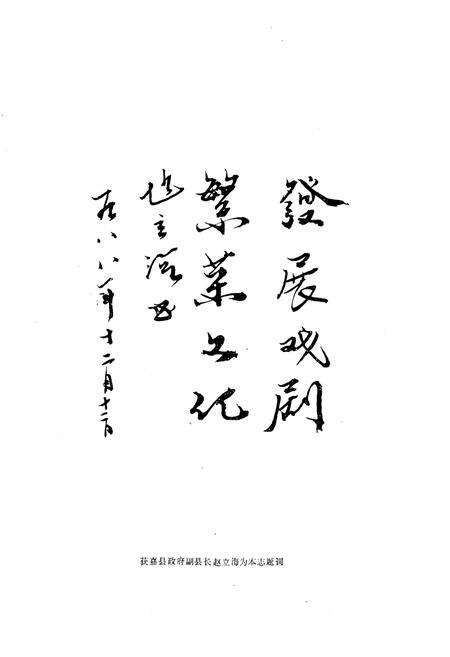 發展戏剧
繁荣文化
赵立海书
一九八八年十二月十二日
获嘉县政府副县长赵立海为本志题词